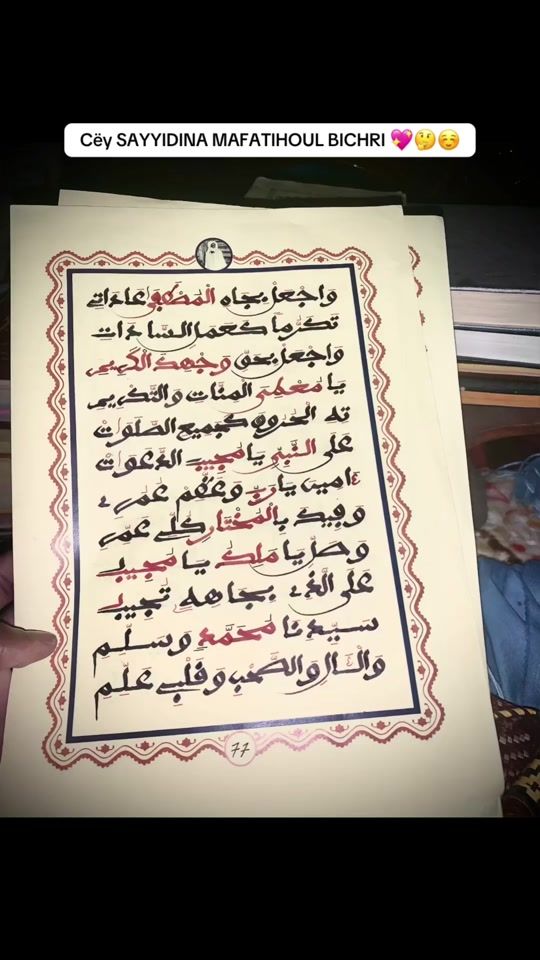 Cëy SAYYIDINA MAFATIHOUL BICHRI 💖🤔☺️
وَاجْعَلْ بِجَاهِ الْمُصْطَفَى عَادَاتِي
تَكَرُّمًا كَعَمَلِ السَّادَاتِ
وَاجْعَلْ بِحَقِّ وَجْهِكَ الْكَرِيمِ
يَا مُعْطِيَ الْمِئَاتِ وَالتَّكْرِيمِ
الْحُرُوفَ كَجَمِيعِ الصَّلَوَاتْ
عَلَى النَّبِيِّ يَا مُجِيبَ الدَّعَوَاتْ
ءَامِينَ يَا رَبِّ وَعَظِّمْ
وَقِيدَ بِالْمُخْتَارِ
وَصَلِّ يَا مَلِكُ يَا مُجِيبُ
عَلَى الَّذِي بِجَاهِهِ تُجِيبُ
سَيِّدِنَا مُحَمَّدٍ وَسَلِّمِ
وَالْآلِ وَالصَّحْبِ وَقَلْبِي عَلِّمِ
77